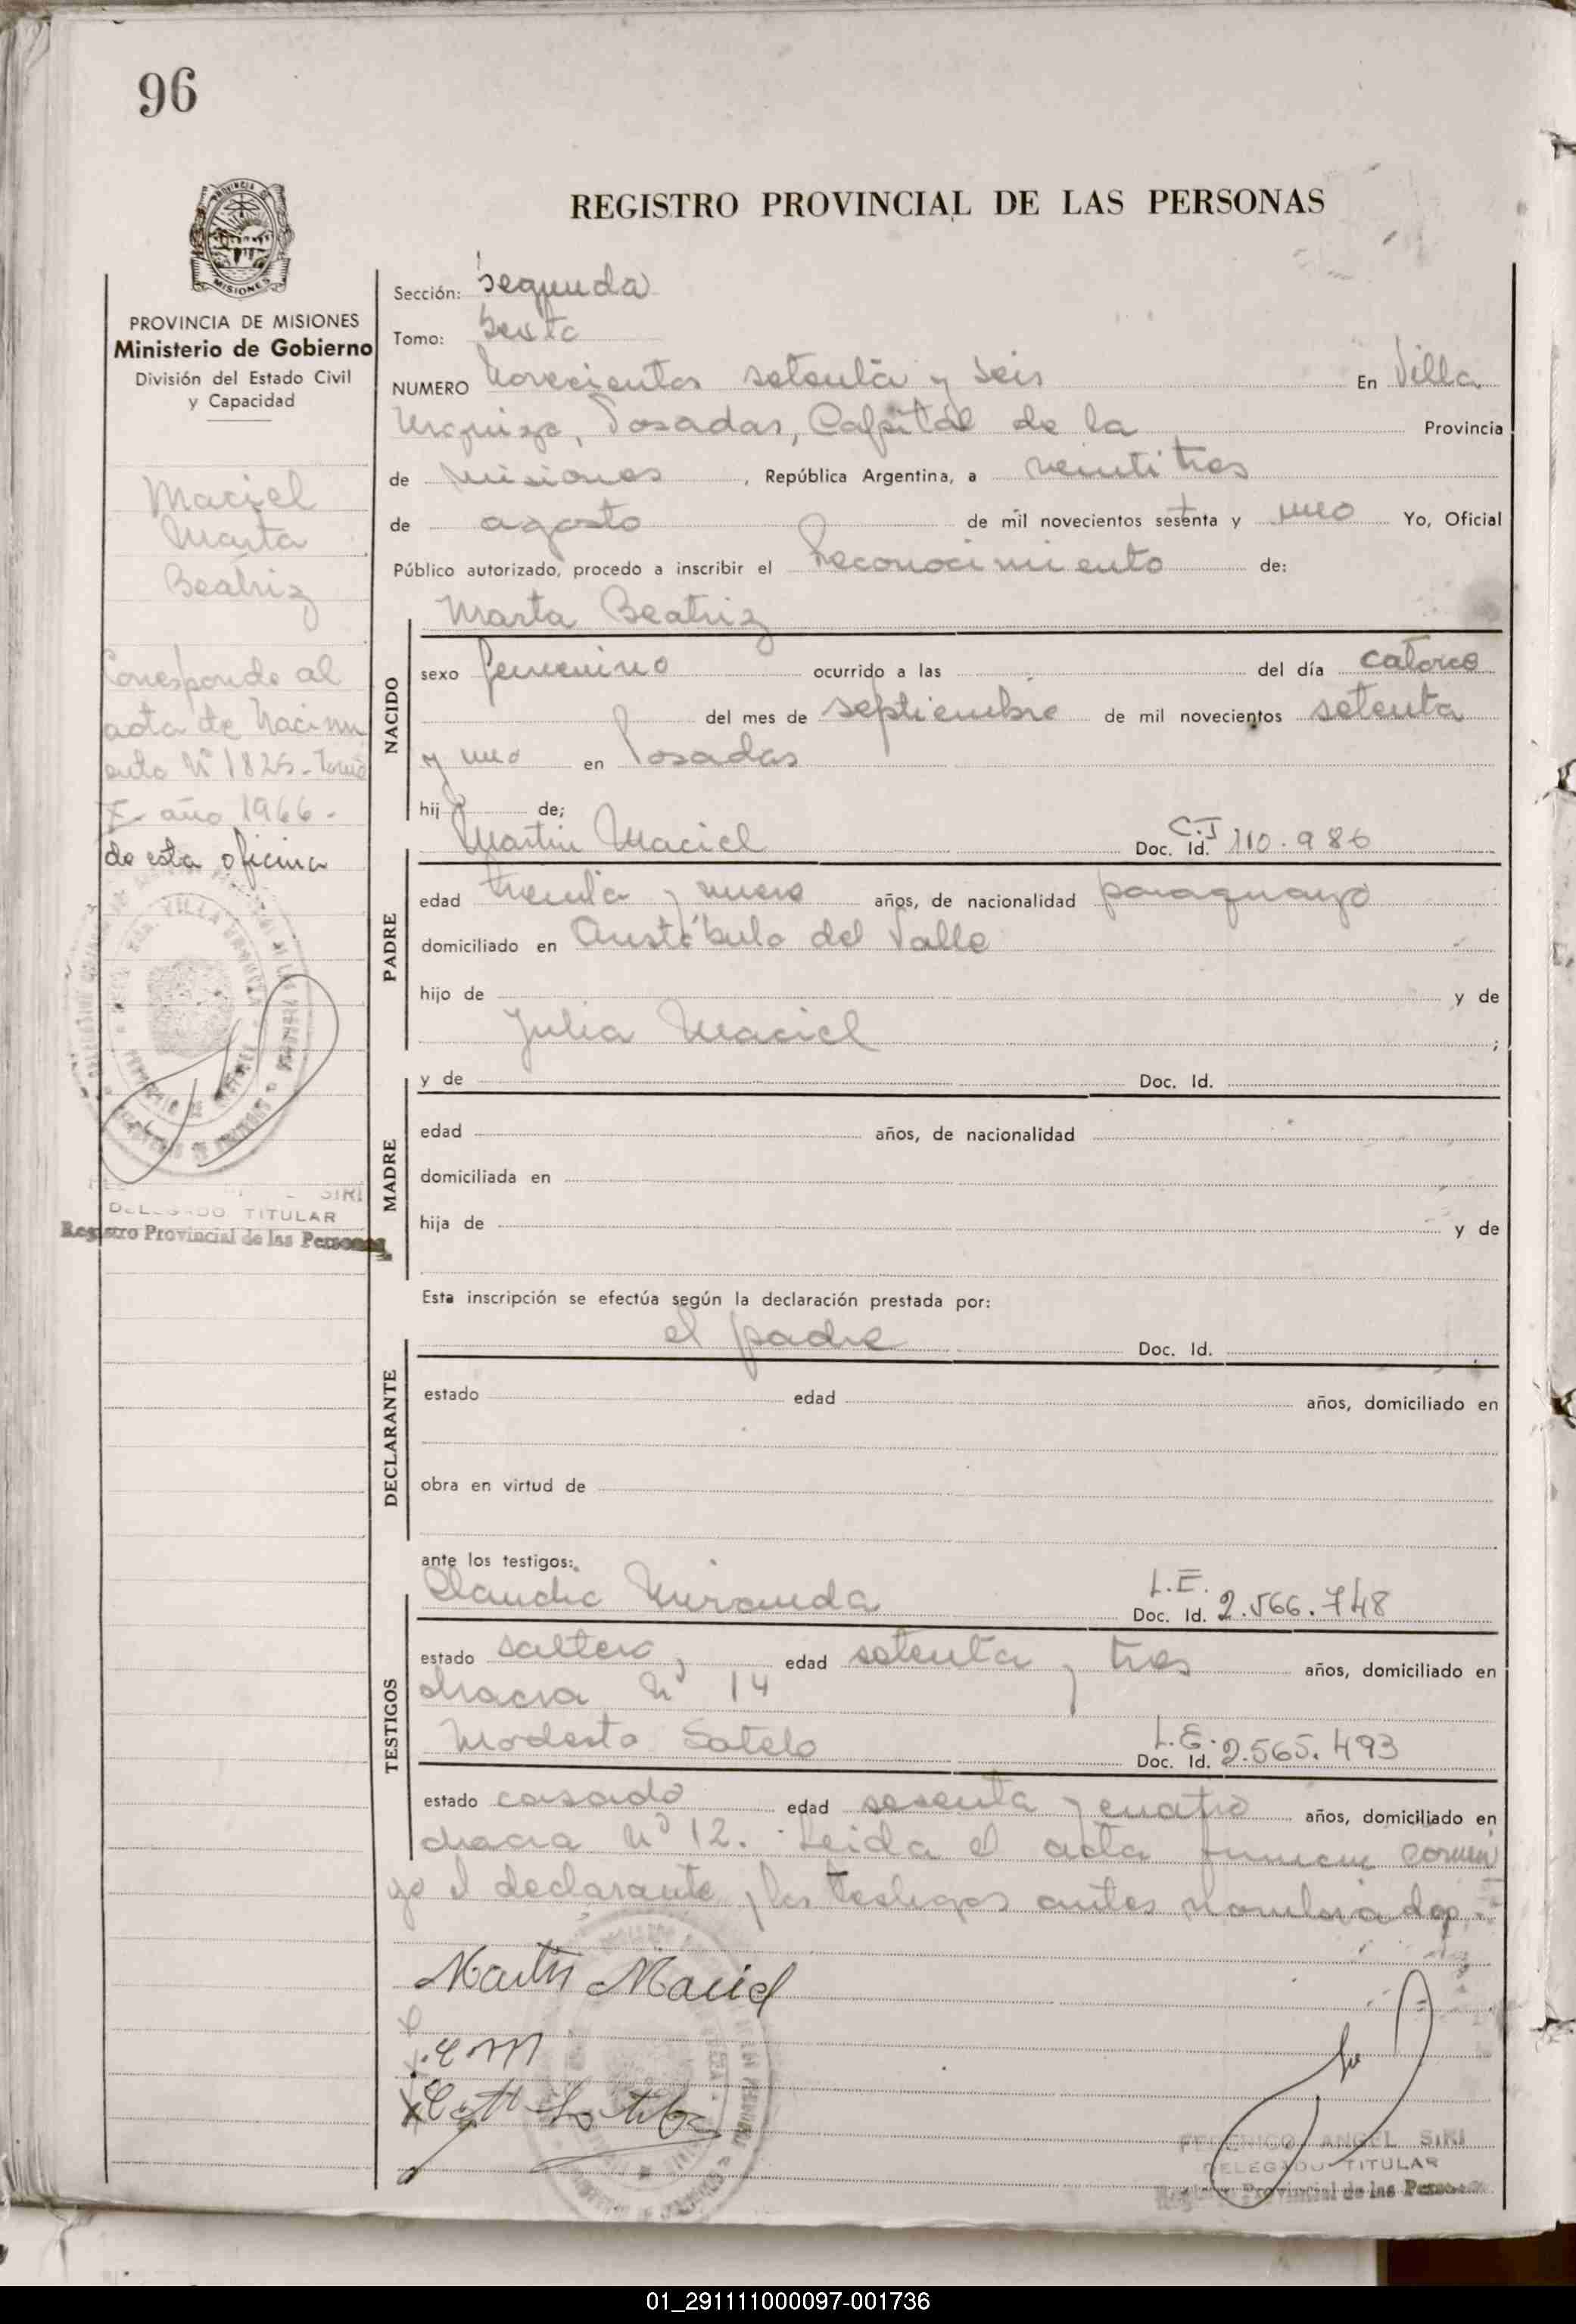 96
REGISTRO PROVINCIAL DE LAS PERSONAS
MISIONES
PROVINCIA DE MISIONES
Ministerio de Gobierno
División del Estado Civil
y Capacidad
Maciel
Marta
Beatriz
Corresponde al
acta de Nacimi
ento Nº 1825 - Tomo
año 1966 -
de esta oficina
SIRI
DELEGADO TITULAR
Registro Provincial de las Personas
Sección: Segunda
Tomo: Sexto
NUMERO Novecientos setenta y seis En Villa
Urquiza, Posadas, Capital de la Provincia
de Misiones, República Argentina, a veintitres
de agosto de mil novecientos sesenta y uno Yo, Oficial
Público autorizado, procedo a inscribir el Reconocimiento de:
Marta Beatriz
NACIDO
sexo femenino ocurrido a las del día catorce
del mes de septiembre de mil novecientos setenta
y uno en Posadas
hij de;
Martin Maciel Doc. Id. C.I 110.986
PADRE
edad treinta y nueve años, de nacionalidad paraguayo
domiciliado en Aristóbulo del Valle
hijo de y de
Julia Maciel ;
MADRE
y de Doc. Id.
edad años, de nacionalidad
domiciliada en
hija de y de
Esta inscripción se efectúa según la declaración prestada por:
DECLARANTE
el padre Doc. Id.
estado edad años, domiciliado en
obra en virtud de
ante los testigos:
TESTIGOS
Claudio Miranda Doc. Id. L.E. 2.566.748
estado soltero, edad setenta y tres años, domiciliado en
chacra Nº 14
Modesto Sotelo Doc. Id. L.E. 2.565.493
estado casado edad sesenta y cuatro años, domiciliado en
chacra Nº 12. Leida el acta firman conmi
go el declarante y los testigos antes nombrados.
Martin Maciel
C M
FEDERICO ANGEL SIRI
DELEGADO TITULAR
Registro Provincial de las Personas
01_291111000097-001736